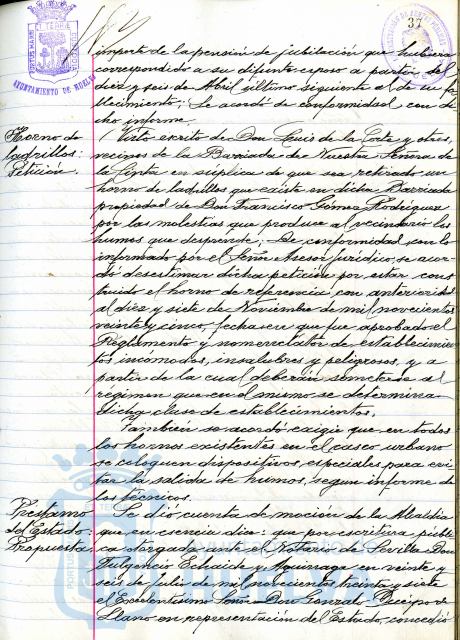 37
AYUNTAMIENTO DE HUELVA
importe de la pensión de jubilación que hubiera
correspondido a su difunto esposo a partir del
diez y seis de Abril último siguiente al de su fa
llecimiento; Se acordó de conformidad con di
cho informe.
Horno de
ladrillos:
Petición.
Visto escrito de Don Luis de la Corte y otros,
vecinos de la Barriada de Nuestra Señora de
la Cinta en súplica de que sea retirado un
horno de ladrillos que existe en dicha Barriada
propiedad de Don Francisco Gómez Rodríguez
por las molestias que produce al vecindario los
humos que desprende; De conformidad con lo
informado por el Señor Asesor Jurídico, se acor
dó desestimar dicha petición por estar cons
truido el horno de referencia con anterioridad
al diez y siete de Noviembre de mil novecientos
veinte y cinco, fecha en que fue aprobado el
Reglamento y nomenclator de establecimien
tos incómodos, insalubres y peligrosos, y a
partir de la cual deberán someterse al
régimen que en el mismo se determina
dicha clase de establecimientos.
También se acordó exigir que en todos
los hornos existentes en el casco urbano
se coloquen dispositivos especiales para evi
tar la salida de humos, según informe de
los técnicos.
Préstamo
del Estado:
Propuesta
Se dió cuenta de moción de la Alcaldía
que en esencia dice: que por escritura públi
ca otorgada ante el Notario de Sevilla Don
Fulgencio Echaide y Aguinaga en veinte y
seis de Julio de mil novecientos treinta y siete
el Excelentísimo Señor Don Gonzalo Queipo de
Llano en representación del Estado, concedió